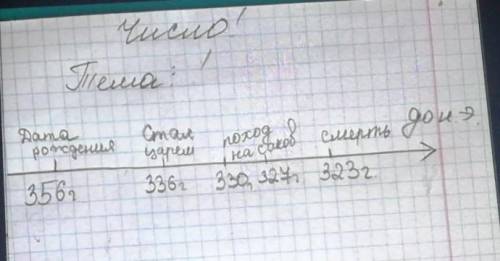 Число!
Тема:
Дата рождения
Стал царем
поход на саков
смерть
до н.э.
356г
336г
330, 327г
323г